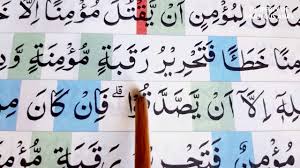 كَانَ لِمُؤْمِنٍ اَنْ يَّقْتُلَ مُؤْمِنًا
نًا خَطَـًٔا فَتَحْرِيْرُ رَقَبَةٍ مُّؤْمِنَةٍ وَّدِ
لِهٖۤ اِلَّاۤ اَنْ يَّصَّدَّقُوْا فَاِنْ كَانَ مِنْ
مُؤْمِنٌ فَتَحْرِيْرُ رَقَبَةٍ مُّؤْمِ